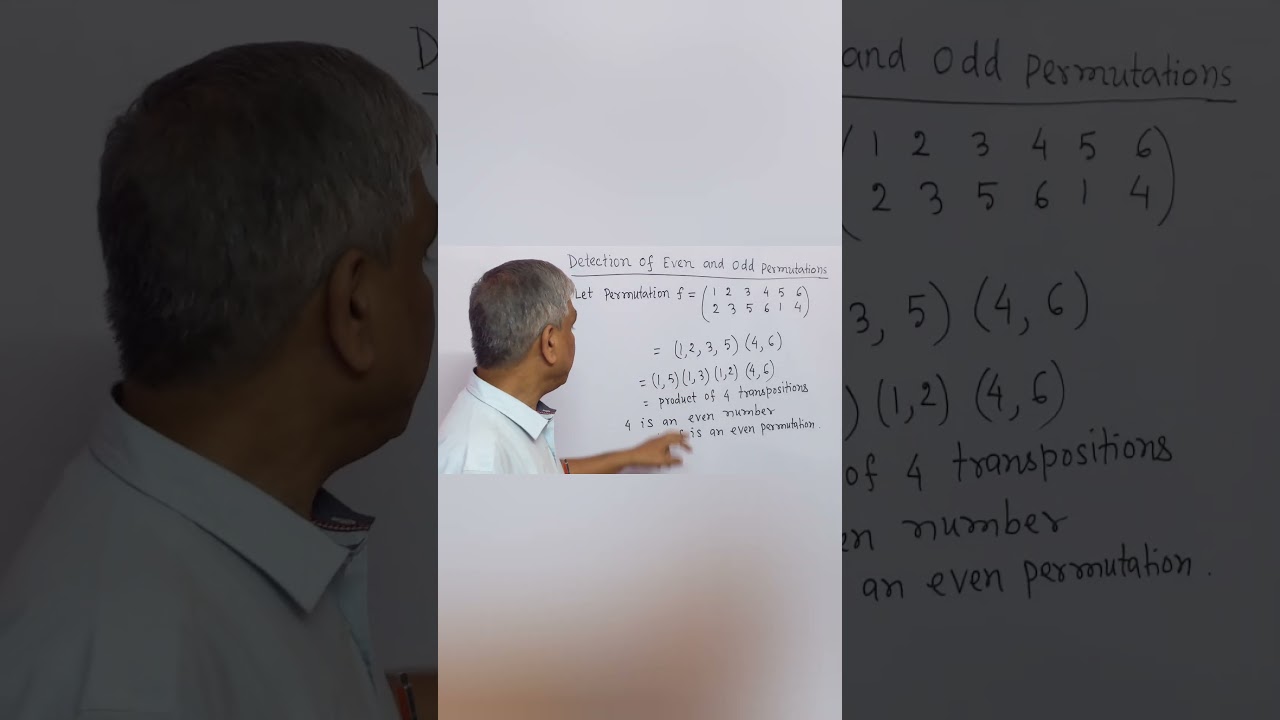 Detection of Even and Odd Permutations
Let Permutation f = ( 1 2 3 4 5 6
2 3 5 6 1 4 )
= (1,2,3,5) (4,6)
= (1,5) (1,3) (1,2) (4,6)
= product of 4 transpositions
4 is an even number
is an even permutation.